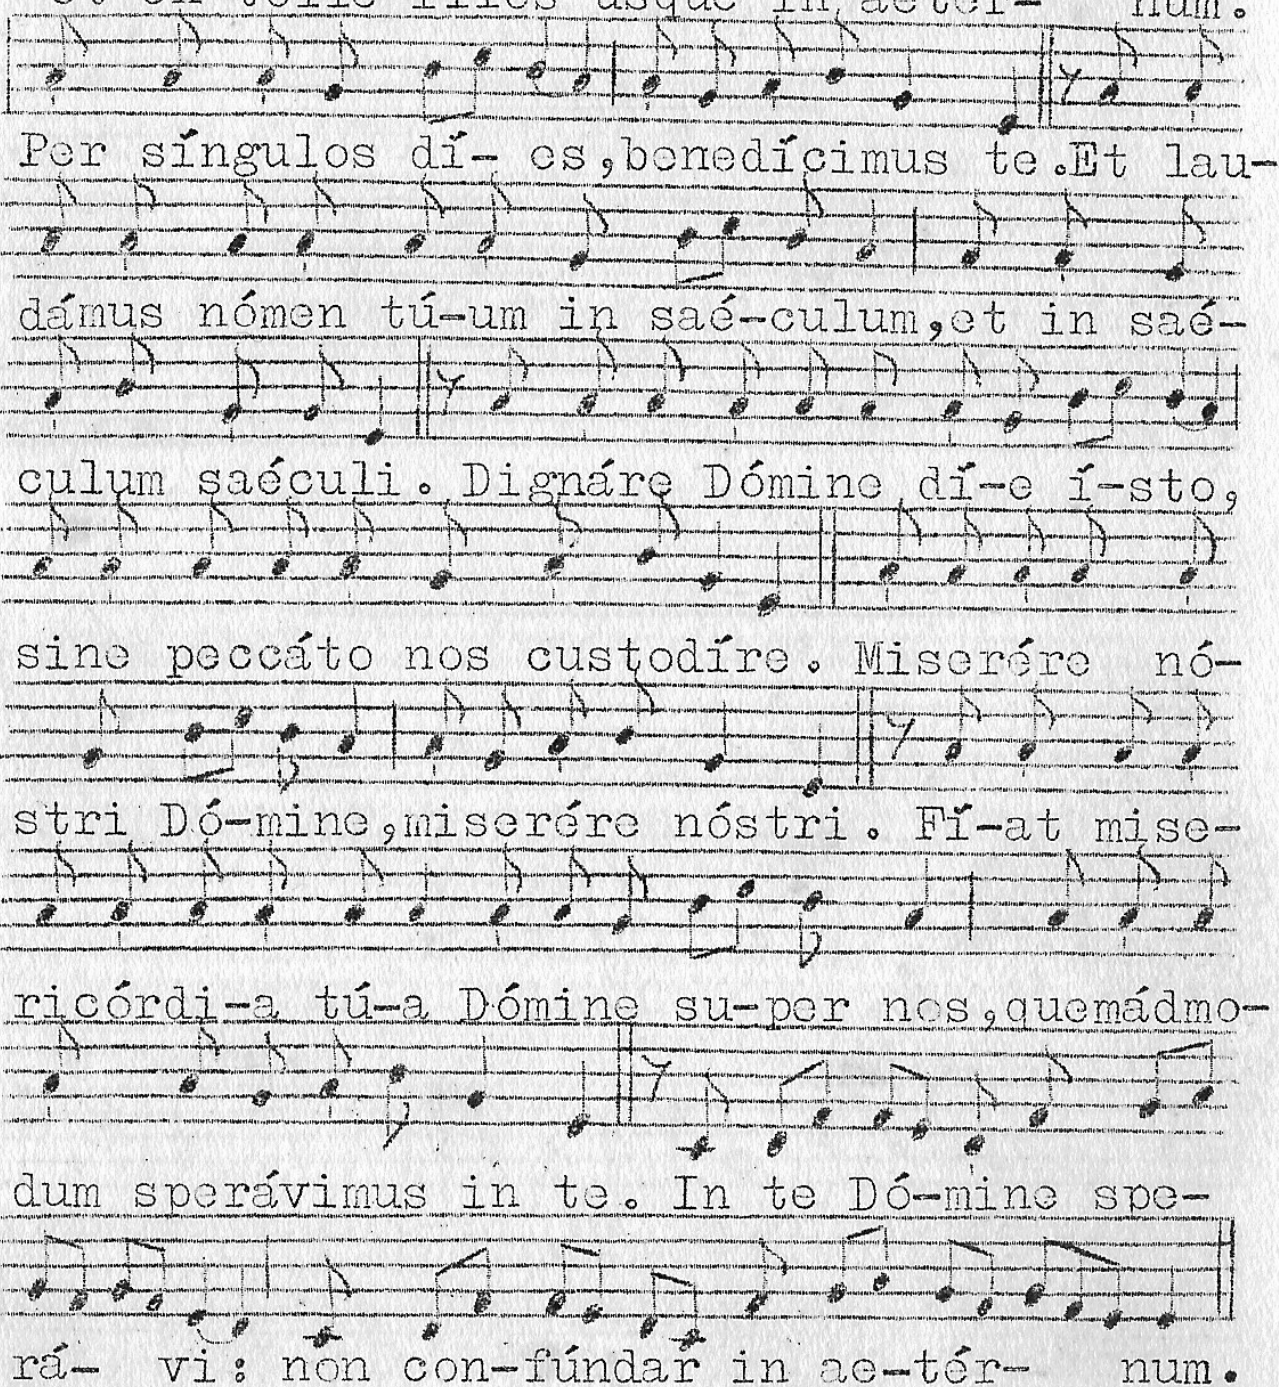 et ex tolle illos usque in aetér- num.
Per síngulos dí- es,benedícimus te.Et lau-
dámus nómen tú-um in saé-culum,et in saé-
culum saéculi. Dignáre Dómine dí-e í-sto,
sine peccáto nos custodíre. Miserére nó-
stri Dó-mine,miserére nóstri. Fí-at mise-
ricórdi-a tú-a Dómine su-per nos,quemádmo-
dum sperávimus in te. In te Dó-mine spe-
rá- vi: non con-fúndar in ae-tér- num.